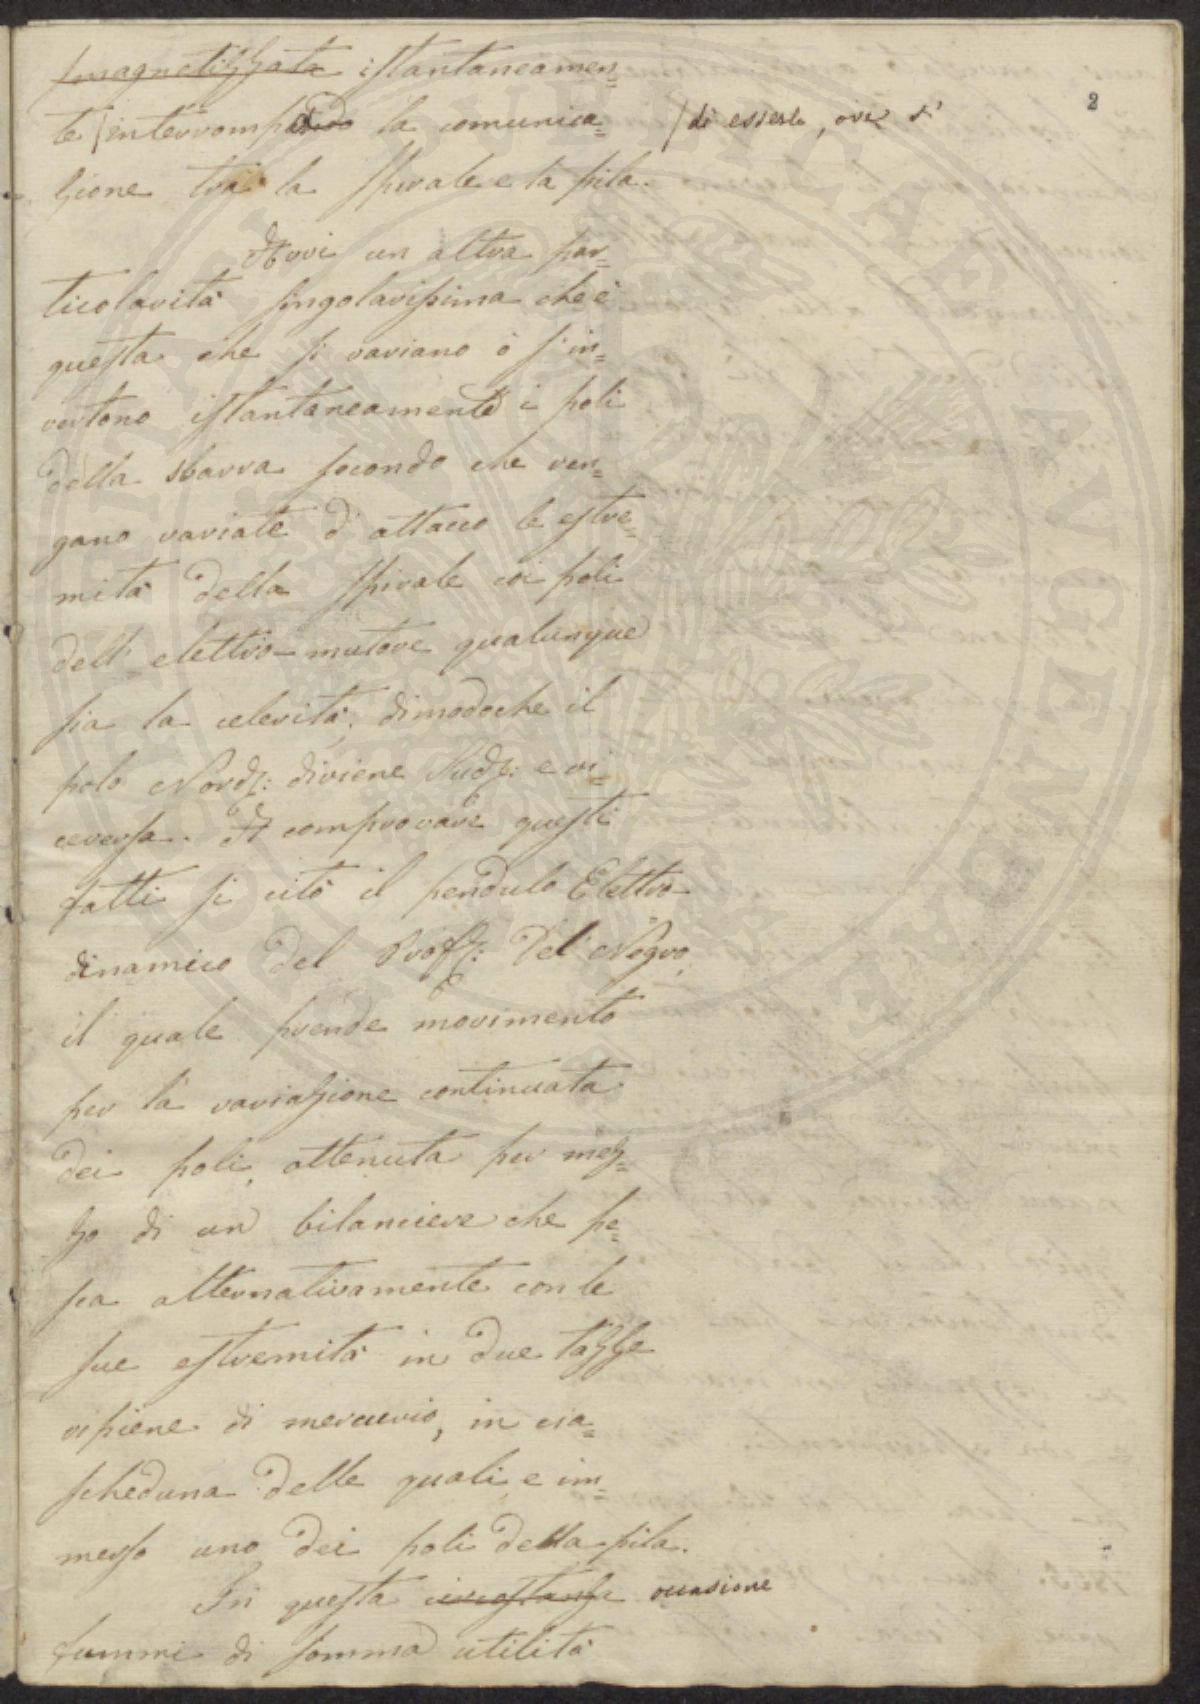 2
smagnetizzata istantaneamen=
te / interrompendo la comunica= / di esserlo, ove s'
zione tra la spirale e la pila.
Avvi un altra par=
ticolarità singolarissima che è
questa che si variano ò s'in=
vertono istantaneamente i poli
della sbarra secondo che ven=
gano variate d'attacco le estre=
mità della spirale coi poli
dell' elettro-motore qualunque
sia la celerità; dimodoche il
polo Nord: diviene Sud: e vi=
ceversa. A comprovare questi
fatti si citò il pendulo Elettro-
dinamico del Prof: Del Negro,
il quale prende movimento
per la variazione continuata
dei poli, ottenuta per mez=
zo di un bilanciere che pe=
sca alternativamente con le
sue estremità in due tazze
ripiene di mercurio, in cia=
scheduna delle quali e im=
merso uno dei poli della pila.
In questa circostanza occasione
fummi di somma utilità